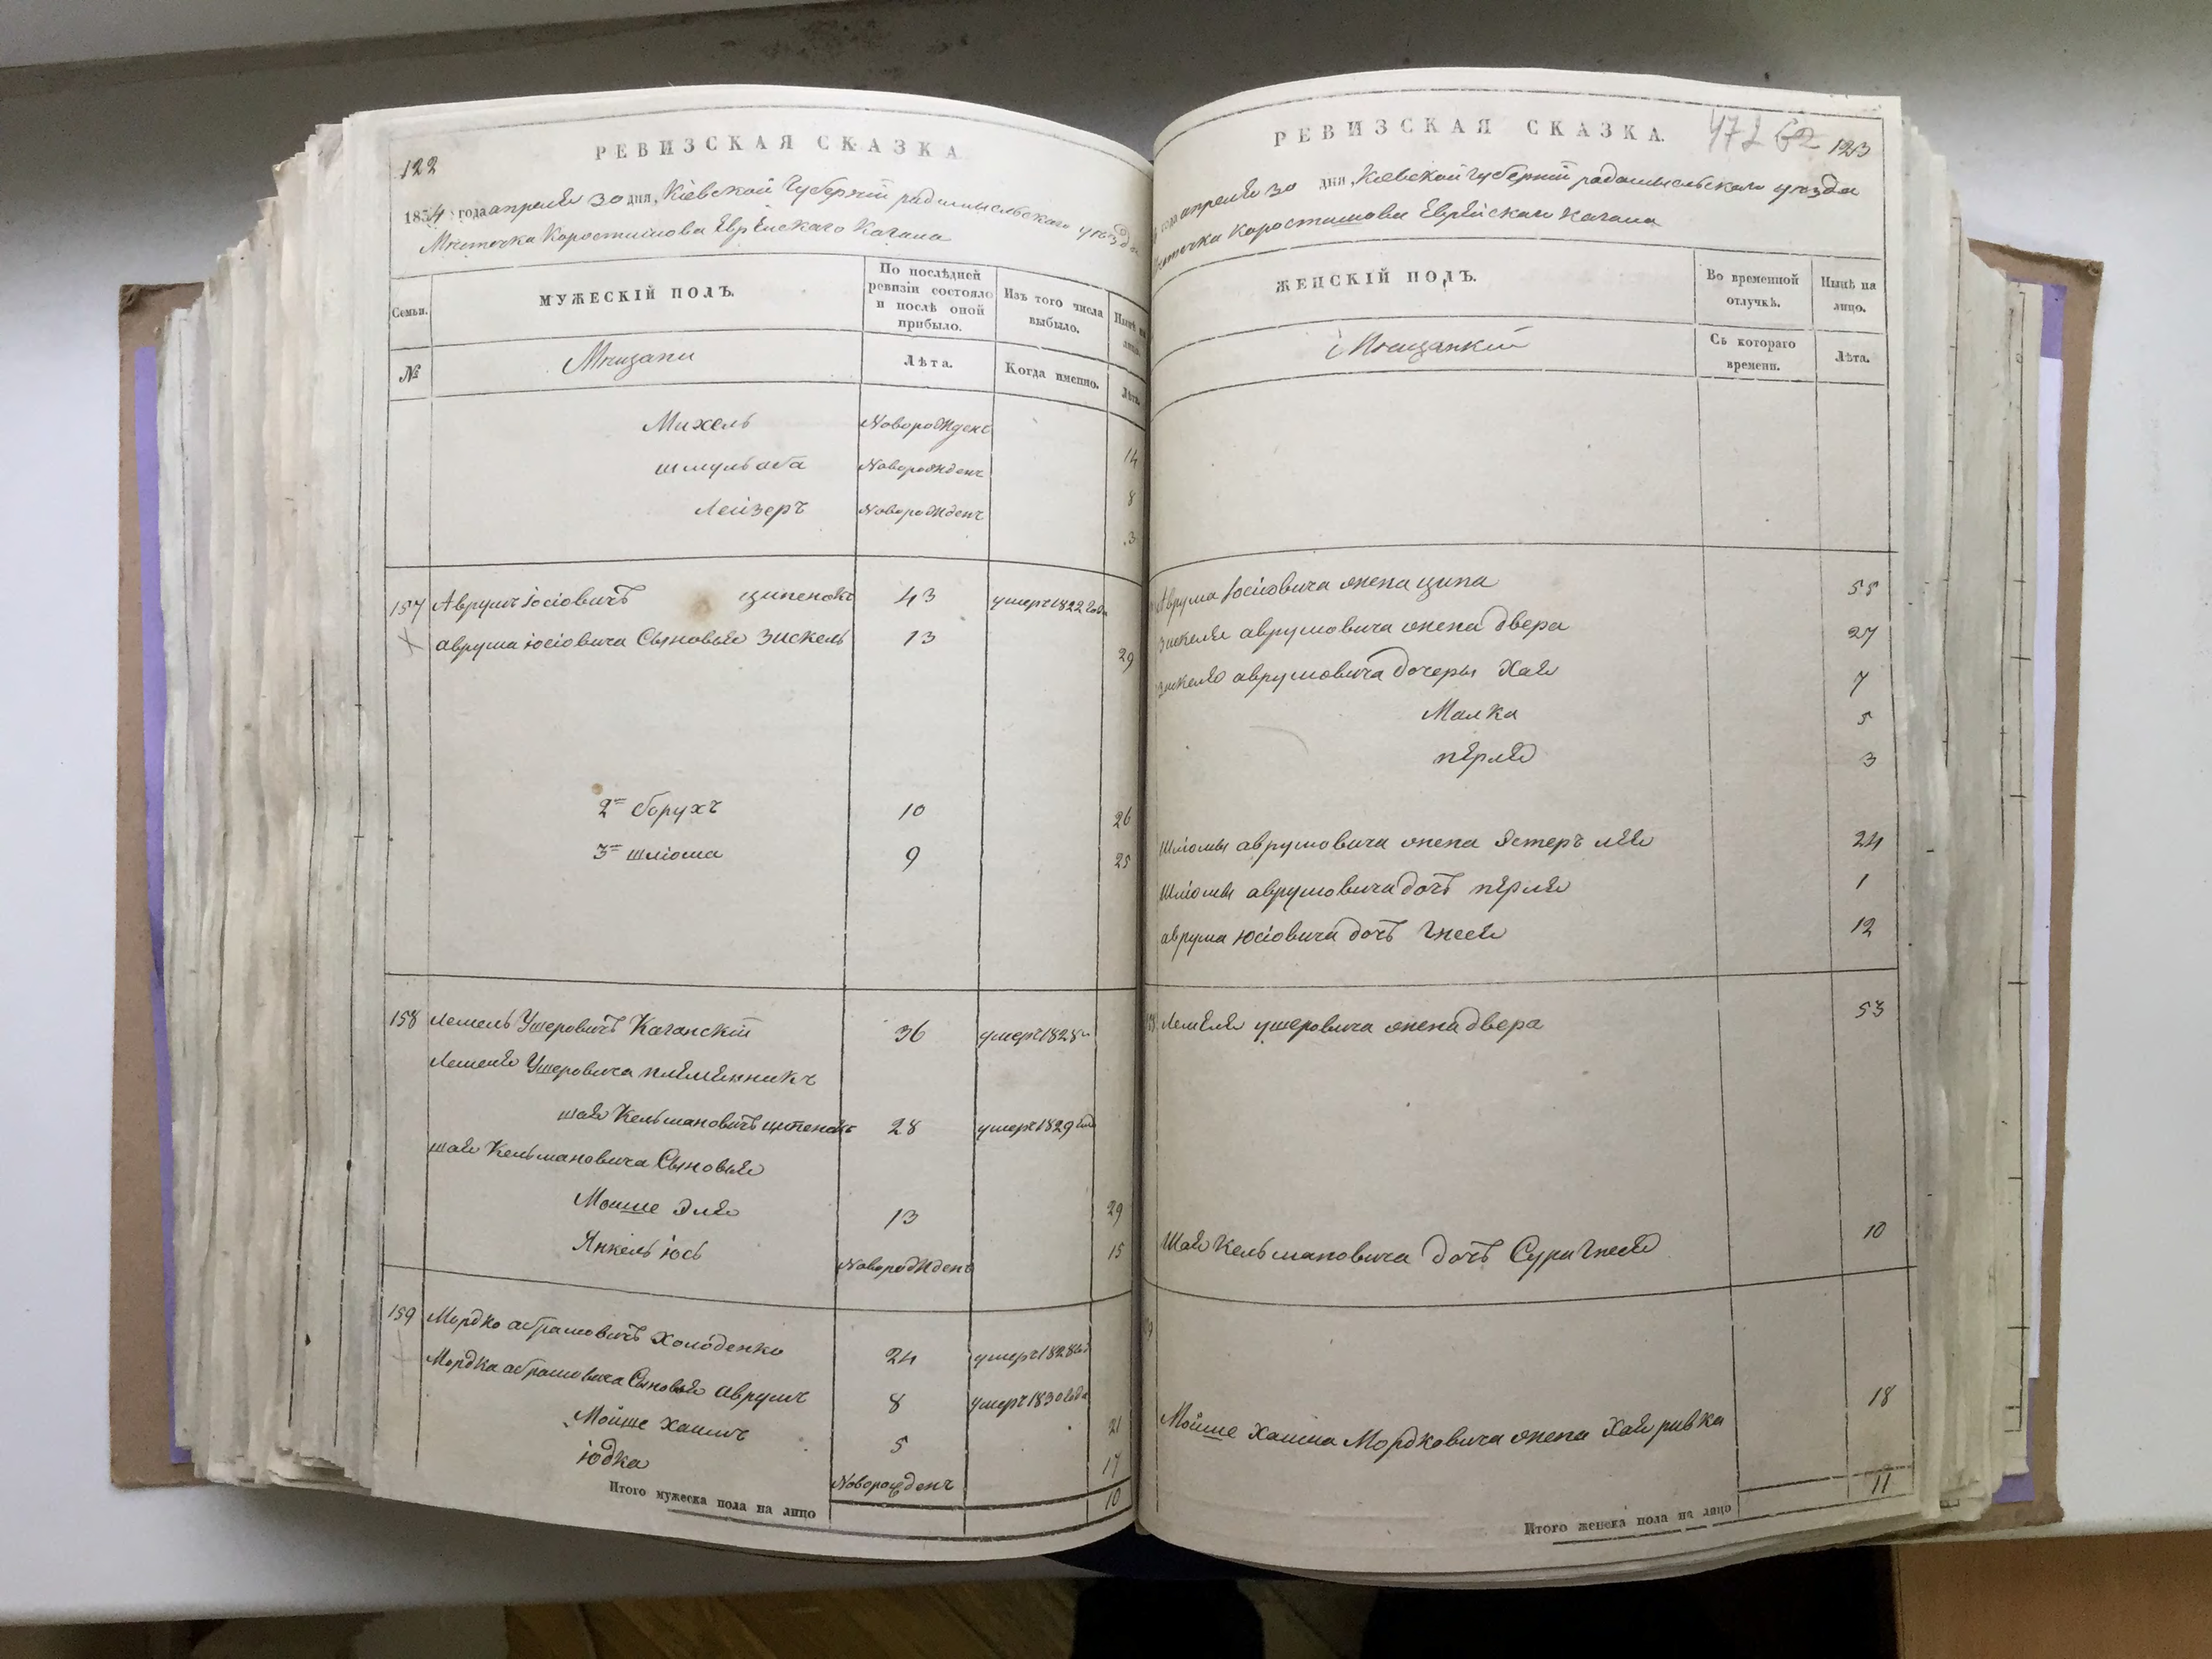 122
РЕВИЗСКАЯ СКАЗКА
1834 года апреля 30 дня, Кіевской Губерніи радомысльскаго уезда
Местечка Коростишова Еврейскаго Кагала
Семьи.
МУЖЕСКІЙ ПОЛЪ.
По послѣдней ревизіи состояло и послѣ оной прибыло.
Изъ того числа выбыло.
Нынѣ на лицо.
№
Мещани
Лѣта.
Когда именно.
Лѣта.
Михель Новорожденъ 14
шмуль аба Новорожденъ 8
Лейзеръ Новорожденъ 3
157 Аврумъ іосіовичъ ципенокъ 43 умеръ 1822 года
аврума іосіовича Сыновья Зискель 13 29
2й борухъ 10 26
3й шліома 9 25
158 Лемель Ушеровичъ Каганскій 36 умеръ 1828
Лемеля Ушеровича племенникъ
шая Кельмановичъ ципенокъ 28 умеръ 1829 года
шая Кельмановича Сыновья
Мошше Эля 13 29
Янкель іось Новорожденъ 15
159 Мордко абрамовичъ Холоденко 24 умеръ 1828
Мордка абрамовича Сыновья аврумъ 8 умеръ 1830 года
Мойше хаимъ 5 21
іодка Новорожденъ 17
Итого мужеска пола на лицо 10
РЕВИЗСКАЯ СКАЗКА.
472 62 123
года апреля 30 дня, Кіевской Губерніи радомысльскаго уезда
Местечка Коростишова Еврейскаго Кагала
ЖЕНСКІЙ ПОЛЪ.
Во временной отлучкѣ.
Нынѣ на лицо.
і Мещанкій
Съ котораго времени.
Лѣта.
Аврума іосіовича жена ципа 55
Зискеля аврумовича жена двера 27
Зискеля аврумовича дочеры Хая 7
Малка 5
перля 3
Шліомы аврумовича жена Эстеръ лея 24
Шліомы аврумовича дочъ перля 1
аврума іосіовича дочъ Гнеся 12
Лемеля ушеровича жена двера 53
Шая Кельмановича дочъ Сура Гнеся 10
Мойше Хаима Мордковича жена Хая ривка 18
Итого женска пола на лицо 11